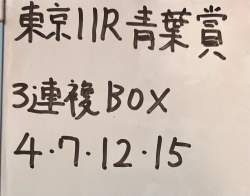 東京11R青葉賞
3連複BOX
4・7・12・15